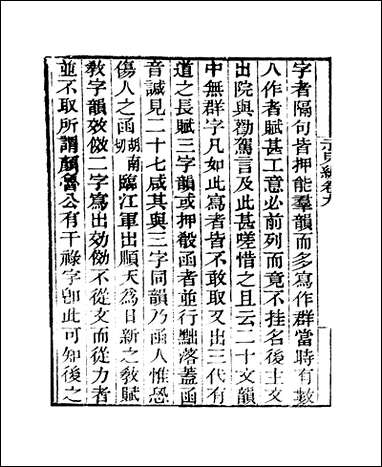 示兒編卷九
字者隔句皆押能羣韻而多寫作群當時有數
人作者賦甚工意必前列而竟不挂名後主文
出院與勸駕言及此甚嗟惜之且云二十文韻
中無群字凡如此寫者皆不敢取又出三代有
道之長賦三字韻或押殽函者並行黜落蓋函
音諴見二十七咸其與三字同韻乃函人惟恐
傷人之函胡南切臨江軍出順天爲日新之敎賦
敎字韻效傚二字寫出効俲不從攴而從力者
並不取所謂顏魯公有干祿字卽此可知後之